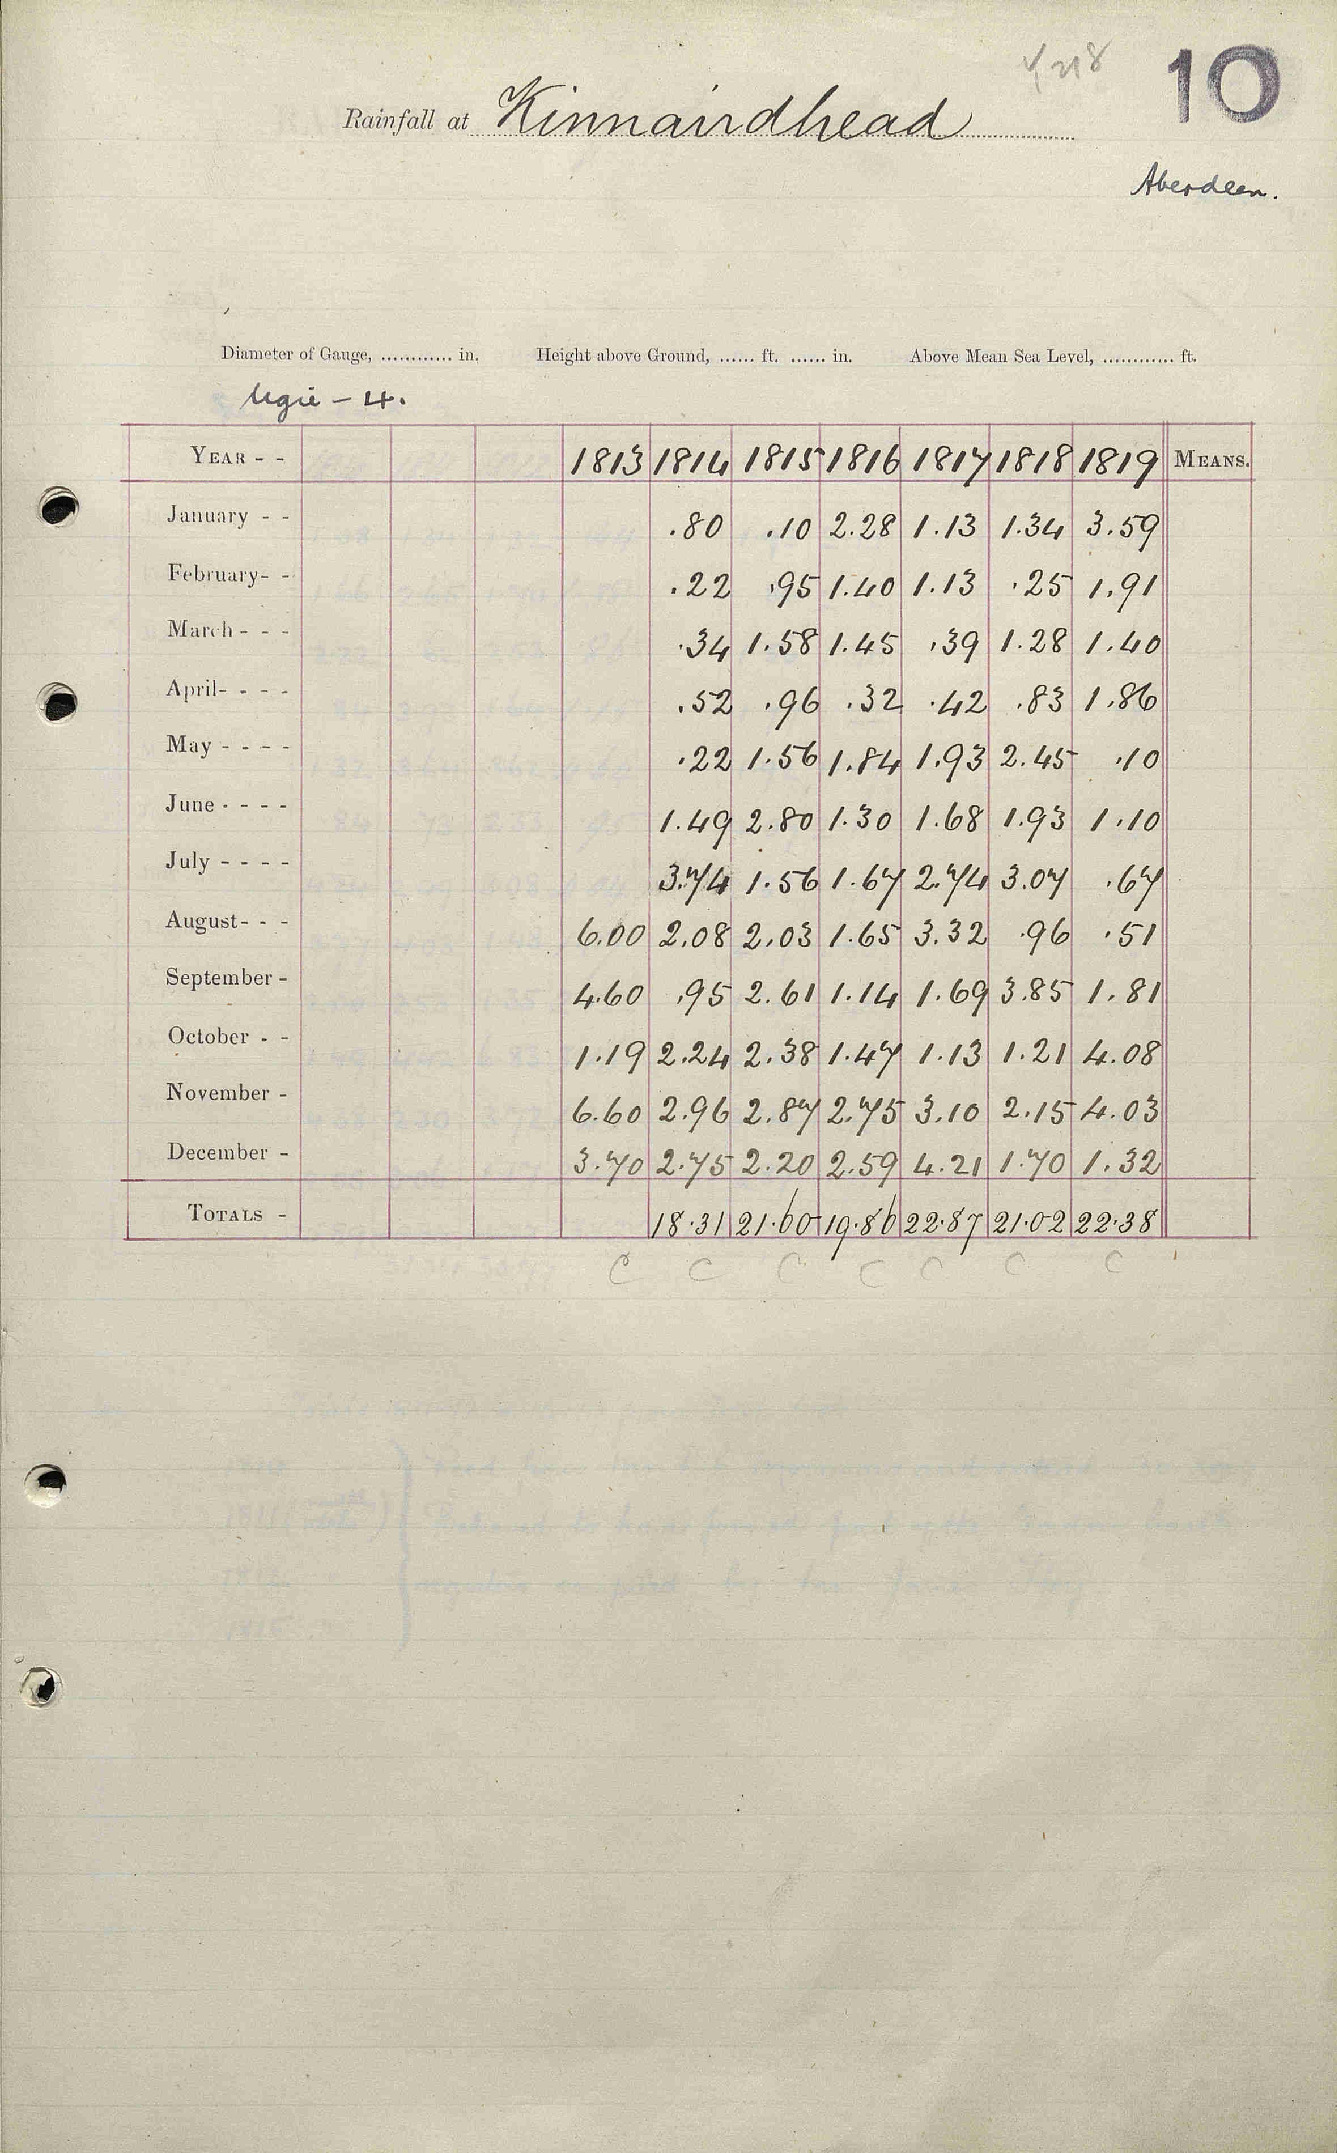 10
Rainfall at Kinnairdhead
Aberdeen.
Diameter of Gauge, ............ in. Height above Ground, ...... ft. ...... in. Above Mean Sea Level, ............ ft.
Ugie - 4.
YEAR - - 1813 1814 1815 1816 1817 1818 1819 MEANS.
January - - .80 .10 2.28 1.13 1.34 3.59
February- - .22 .95 1.40 1.13 .25 1.91
March - - - .34 1.58 1.45 .39 1.28 1.40
April- - - - .52 .96 .32 .42 .83 1.86
May - - - - .22 1.56 1.84 1.93 2.45 .10
June - - - - 1.49 2.80 1.30 1.68 1.93 1.10
July - - - - 3.74 1.56 1.67 2.74 3.07 .67
August- - - 6.00 2.08 2.03 1.65 3.32 .96 .51
September - 4.60 .95 2.61 1.14 1.69 3.85 1.81
October - - 1.19 2.24 2.38 1.47 1.13 1.21 4.08
November - 6.60 2.96 2.87 2.75 3.10 2.15 4.03
December - 3.70 2.75 2.20 2.59 4.21 1.70 1.32
TOTALS - 18.31 21.60 19.86 22.87 21.02 22.38
C C C C C C C